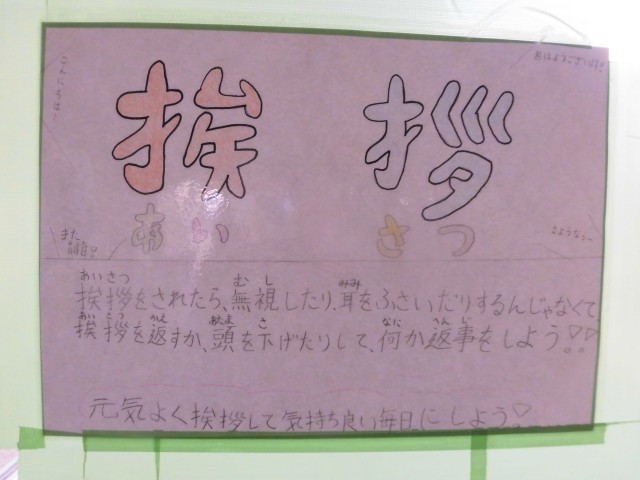 こんにちは!
おはようございます!
挨拶
あいさつ
また
明日!
さようなら〜
あいさつ むし みみ
挨拶をされたら、無視したり、耳をふさいだりするんじゃなくて
あいさつ かえ あたま さ なに へんじ
挨拶を返すか、頭を下げたりして、何か返事をしよう!!
元気よく挨拶して気持ち良い毎日にしよう♡